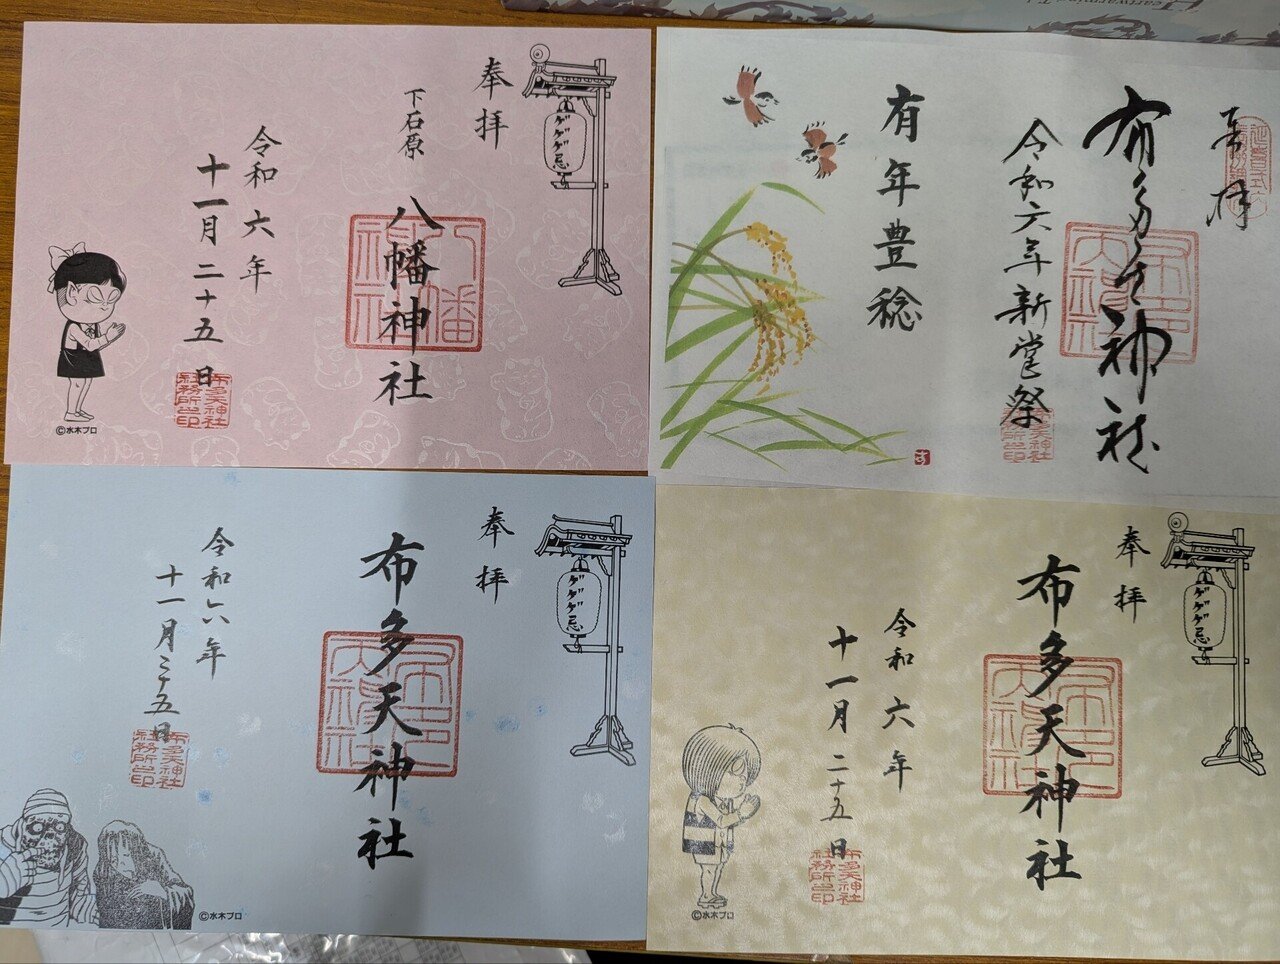 奉拝
ゲゲゲ忌
下石原
八幡神社
令和六年
十一月二十五日
布多天神社
社務所之印
©水木プロ
奉拝
延喜式内
布多天神社
令和六年新嘗祭
有年豊稔
布多天神社
社務所之印
す
奉拝
ゲゲゲ忌
布多天神社
令和六年
十一月二十五日
布多天神社
社務所之印
©水木プロ
奉拝
ゲゲゲ忌
布多天神社
令和六年
十一月二十五日
布多天神社
社務所之印
©水木プロ